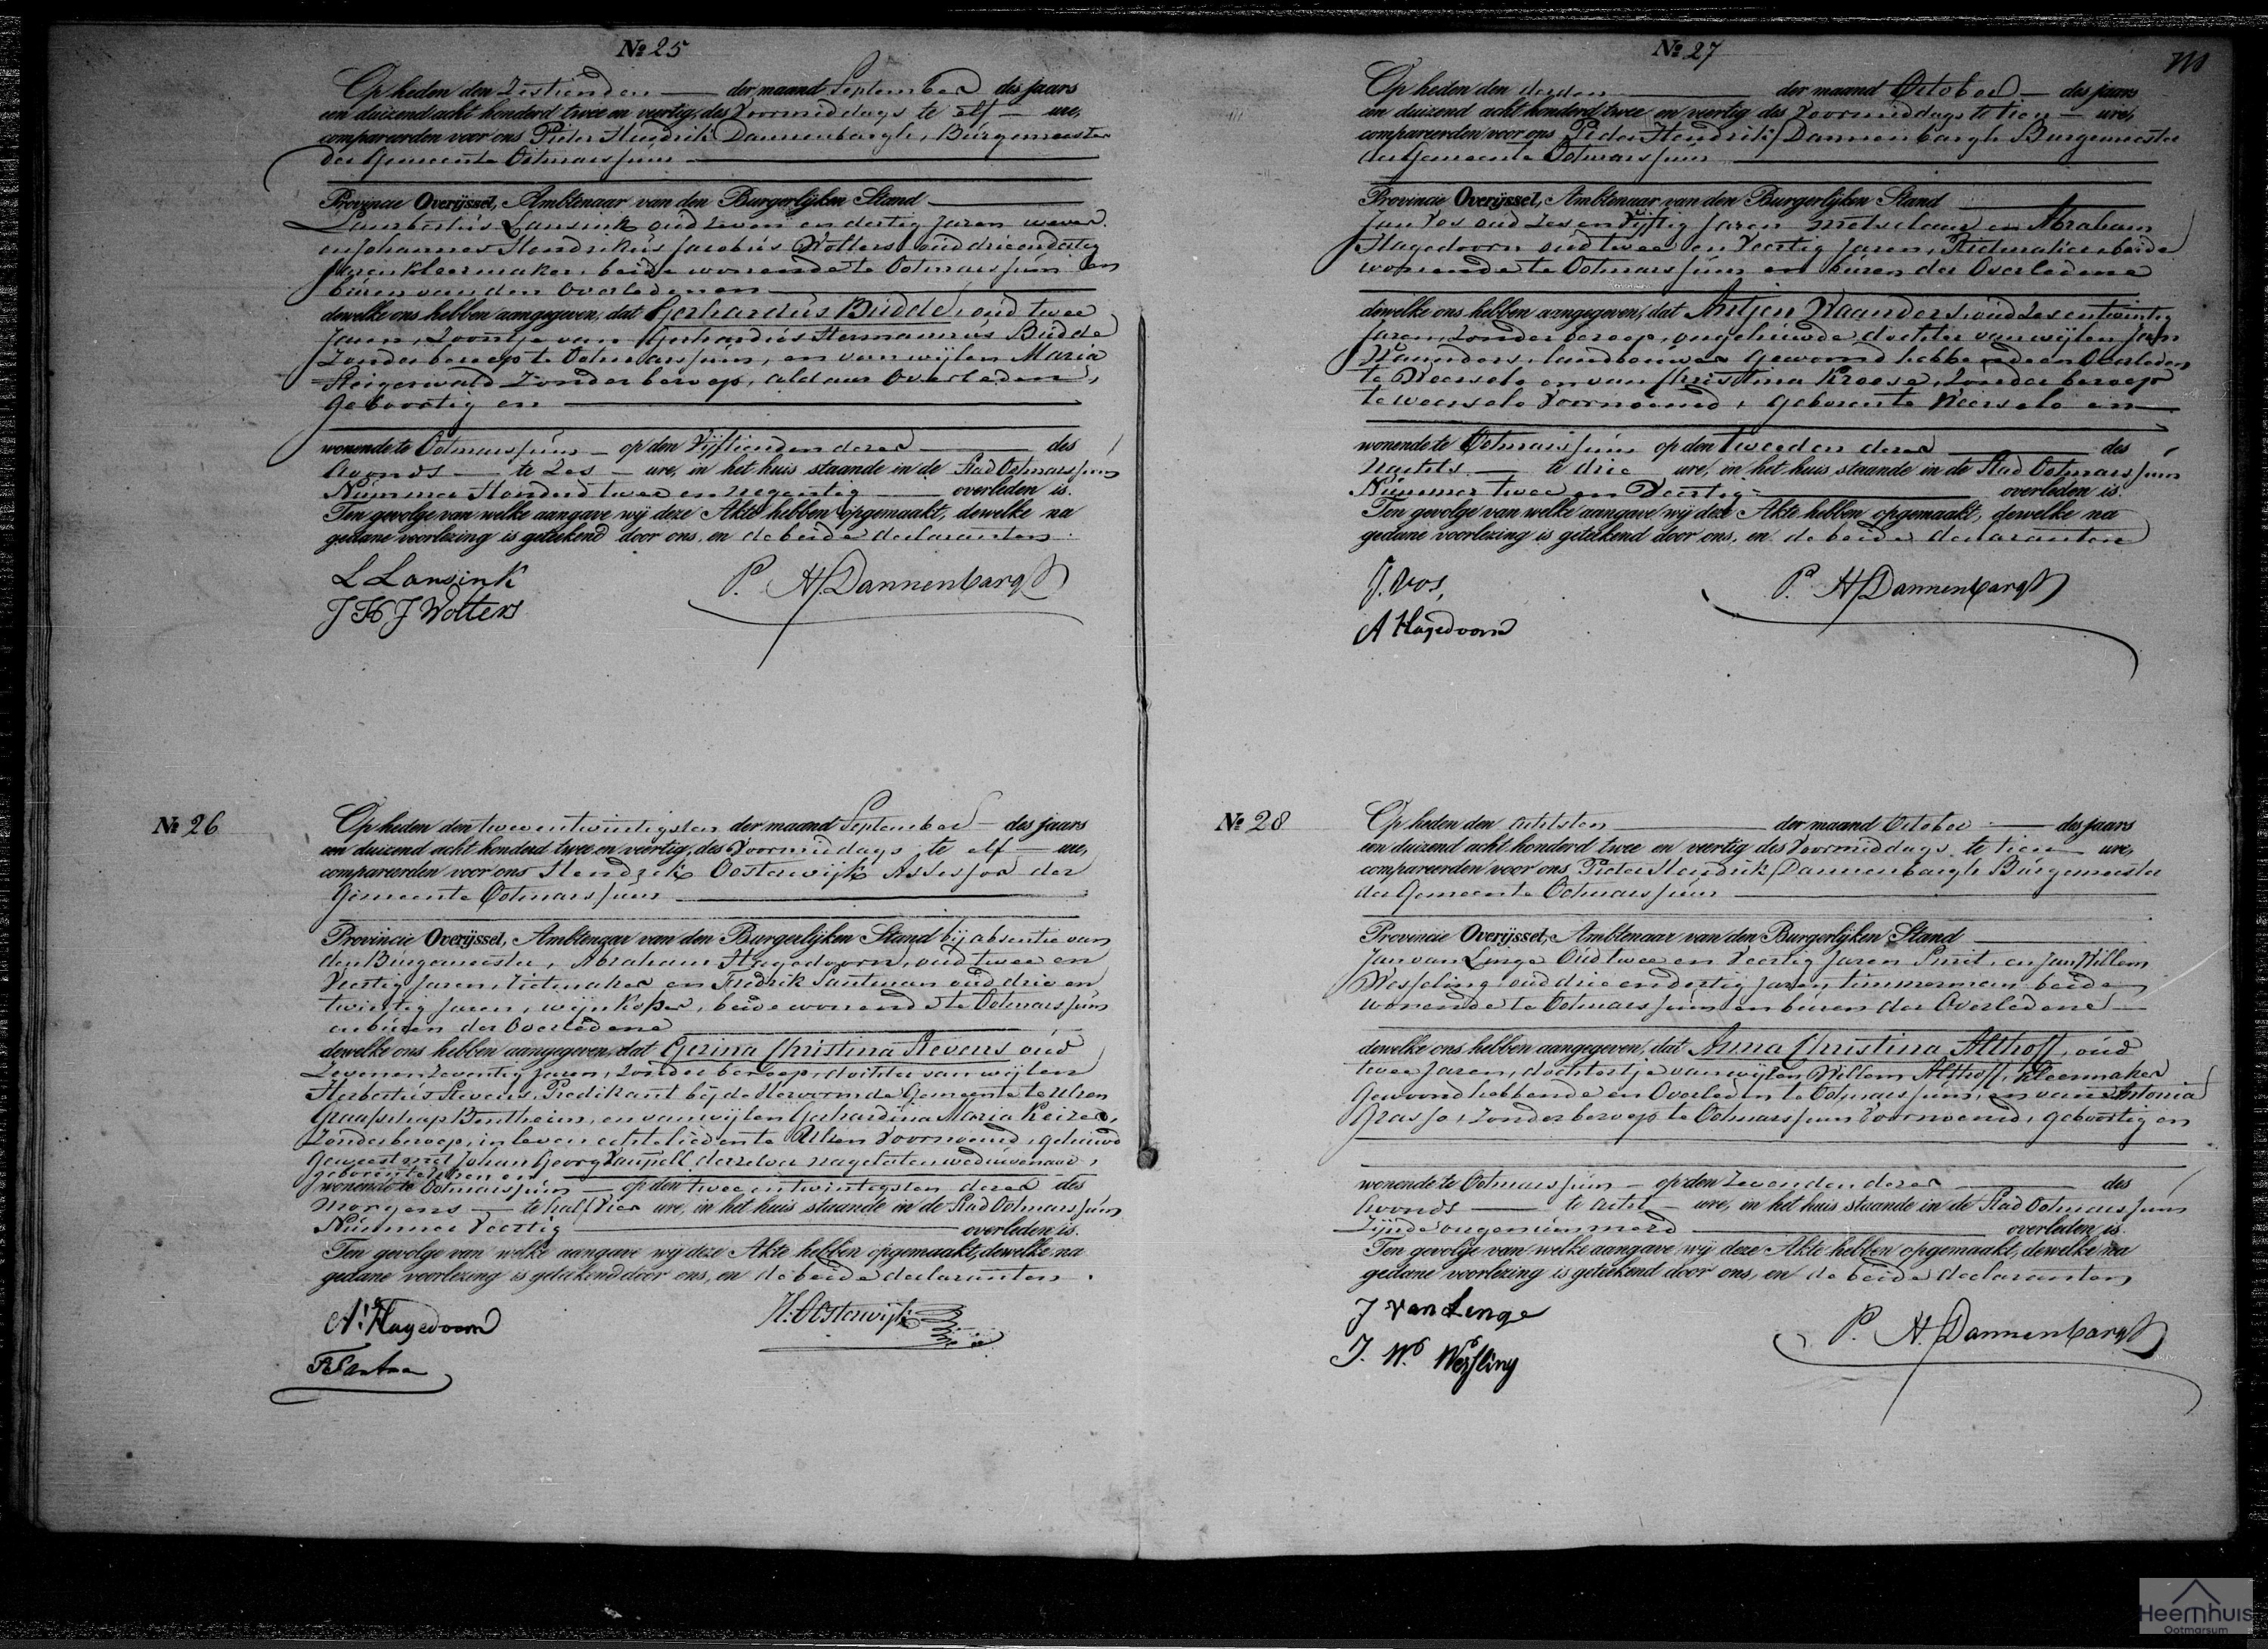 № 25
Op heden den Zestienden der maand September des jaars
een duizend acht honderd twee en veertig, des Voormiddags te elf ure,
compareerden voor ons Pieter Hendrik Dannenbargh, Burgemeester
der Gemeente Ootmarssum
Provincie Overijssel, Ambtenaar van den Burgerlijken Stand
Lambertus Lansink oud zeven en dertig Jaren wever
en Johannes Hendrikus Jacobus Wolters oud drie en dertig
Jaren Kleermaker, beide wonende te Ootmarssum en
buren van den Overledenen
dewelke ons hebben aangegeven, dat Gerhardus Budde, oud twee
Jaren, Zoontje van Gerhardus Hermannus Budde
Zonder beroep te Ootmarssum, en van wijlen Maria
Steigerwald Zonder beroep, aldaar Overleden,
geboortig en
wonende te Ootmarssum op den Vijftienden dezer des
Avonds te Zes ure, in het huis staande in de Stad Ootmarssum
Nummer Honderd twee en negentig overleden is.
Ten gevolge van welke aangave wij deze Akte hebben opgemaakt, dewelke na
gedane voorlezing is geteekend door ons, en de beide declaranten.
L Lansink P. H. Dannenbargh
J H J Wolters
№ 26
Op heden den tweeentwintigsten der maand September des jaars
een duizend acht honderd twee en veertig, des Voormiddags te elf ure,
compareerden voor ons Hendrik Oosterwijk Assessor der
Gemeente Ootmarssum
Provincie Overijssel, Ambtenaar van den Burgerlijken Stand bij absentie van
den Burgemeester, Abraham Hagedoorn, oud twee en
Veertig Jaren, en Fredrik Santman oud drie en
twintig Jaren, wijnkoper, beide wonende te Ootmarssum
en buren der Overledene
dewelke ons hebben aangegeven, dat Gerina Christina Stevens oud
Zeven en Zeventig Jaren, Zonder beroep, dochter van wijlen
Herbertus Stevens, Predikant bij de Hervormde Gemeente te Ulsen
Graafschap Bentheim, en van wijlen Gerhardina Maria Keizer,
Zonder beroep, in leven echtelieden te Ulsen Voornoemd, gehuwd
geweest met Johan Georg Vaupell derzelver nagelaten weduwenaar,
geboren te Ulsen en
wonende te Ootmarssum op den twee en twintigsten dezer des
Morgens te half vier ure, in het huis staande in de Stad Ootmarssum
Nummer Veertig overleden is.
Ten gevolge van welke aangave wij deze Akte hebben opgemaakt, dewelke na
gedane voorlezing is geteekend door ons, en de beide declaranten.
A. Hagedoorn H. Oosterwijk
F Santman
№ 27
Op heden den derden der maand October des jaars
een duizend acht honderd twee en veertig des Voormiddags te tien ure,
compareerden voor ons Pieter Hendrik Dannenbargh Burgemeester
der Gemeente Ootmarssum
Provincie Overijssel, Ambtenaar van den Burgerlijken Stand
Jan Vos oud Zes en Vijftig Jaren metselaar en Abraham
Hagedoorn oud twee en Veertig Jaren, beide
wonende te Ootmarssum en buren der Overledene
dewelke ons hebben aangegeven, dat Antjen Waanders, oud Zes en twintig
Jaren, Zonder beroep, ongehuwde dochter van wijlen Jan
Waanders, landbouwer gewoond hebbende en Overleden
te Weerselo en van Christina Kroese, Zonder beroep
te weerselo Voornoemd, geboren te Weerselo en
wonende te Ootmarssum op den tweeden dezer des
Nachts te drie ure, in het huis staande in de Stad Ootmarssum
Nummer twee en Veertig overleden is.
Ten gevolge van welke aangave wij deze Akte hebben opgemaakt, dewelke na
gedane voorlezing is geteekend door ons, en de beide declaranten
J. Vos, P. H. Dannenbargh
A Hagedoorn
№ 28
Op heden den achtsten der maand October des jaars
een duizend acht honderd twee en veertig des Voormiddags te tien ure,
compareerden voor ons Pieter Hendrik Dannenbargh Burgemeester
der Gemeente Ootmarssum
Provincie Overijssel, Ambtenaar van den Burgerlijken Stand
Jan van Lenge Oud twee en Veertig Jaren Smit, en Jan Willem
Wesseling oud drie en dertig Jaren timmerman beide
wonende te Ootmarssum en buren der Overledene
dewelke ons hebben aangegeven, dat Anna Christina Althoff, oud
twee Jaren, dochtertje van wijlen Willem Althoff, Kleermaker
Gewoond hebbende en Overleden te Ootmarssum, en van Antonia
Grasse, Zonder beroep te Ootmarssum Voornoemd, geboortig en
wonende te Ootmarssum op den Zevenden dezer des
Avonds te acht ure, in het huis staande in de Stad Ootmarssum
Zijnde ongenummerd overleden is.
Ten gevolge van welke aangave wij deze Akte hebben opgemaakt, dewelke na
gedane voorlezing is geteekend door ons, en de beide declaranten
J van Lenge P. H. Dannenbargh
J. W. Wesseling
Heemhuis
Ootmarsum